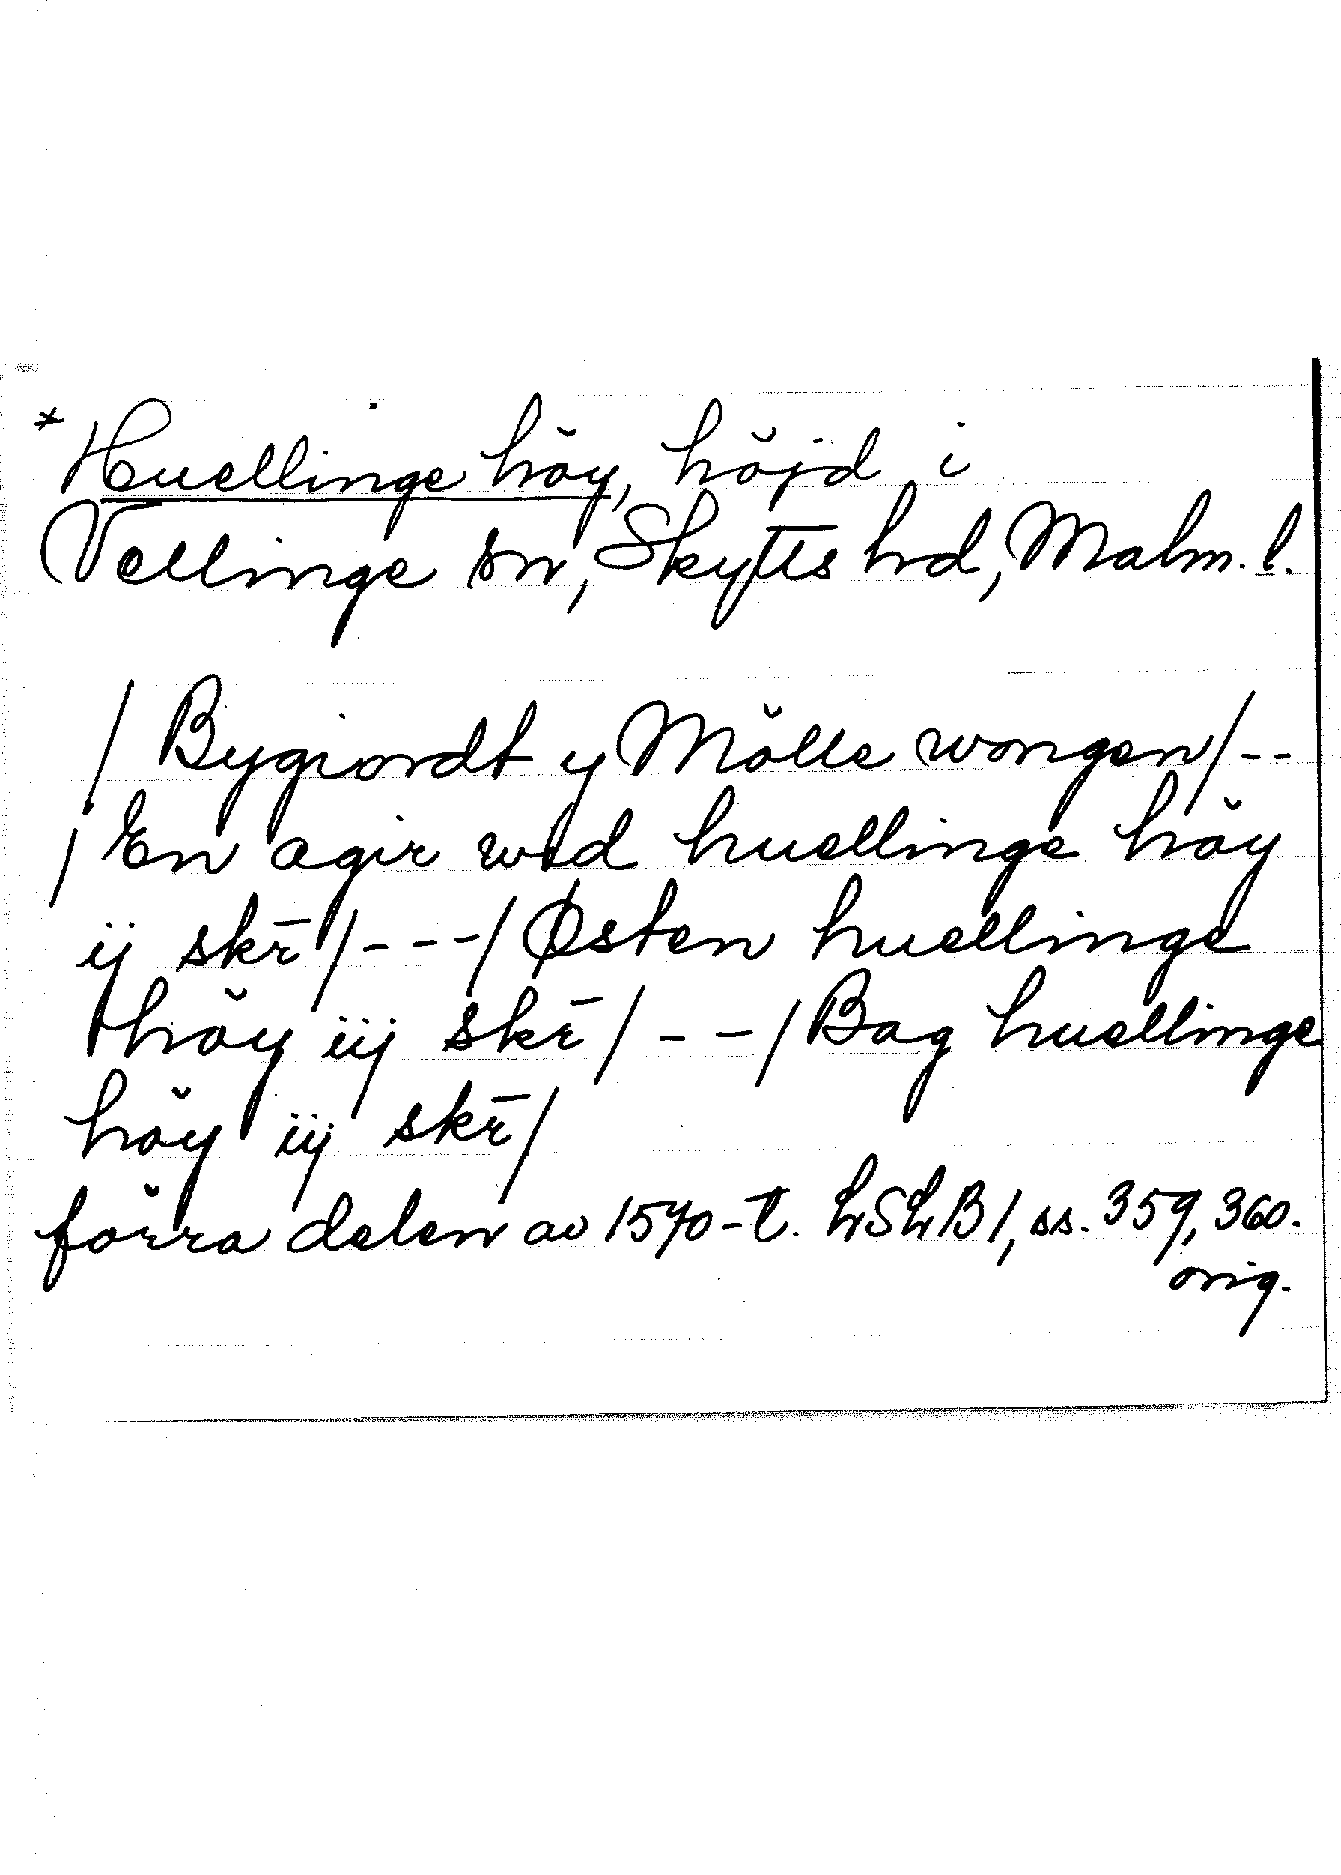 * Huellinge höy, höjd i
Vellinge sn, Skytts hd, Malm. l.
/ Bygiordt y Mölle wongen/--
/ En agir wed huellinge höy
ij skr̄/---/ Østen huellinge
höy iij skr̄/--/ Bag huellinge
höy iij skr̄/
förra delen av 1570-t. LSLB 1, ss. 359, 360.
orig.